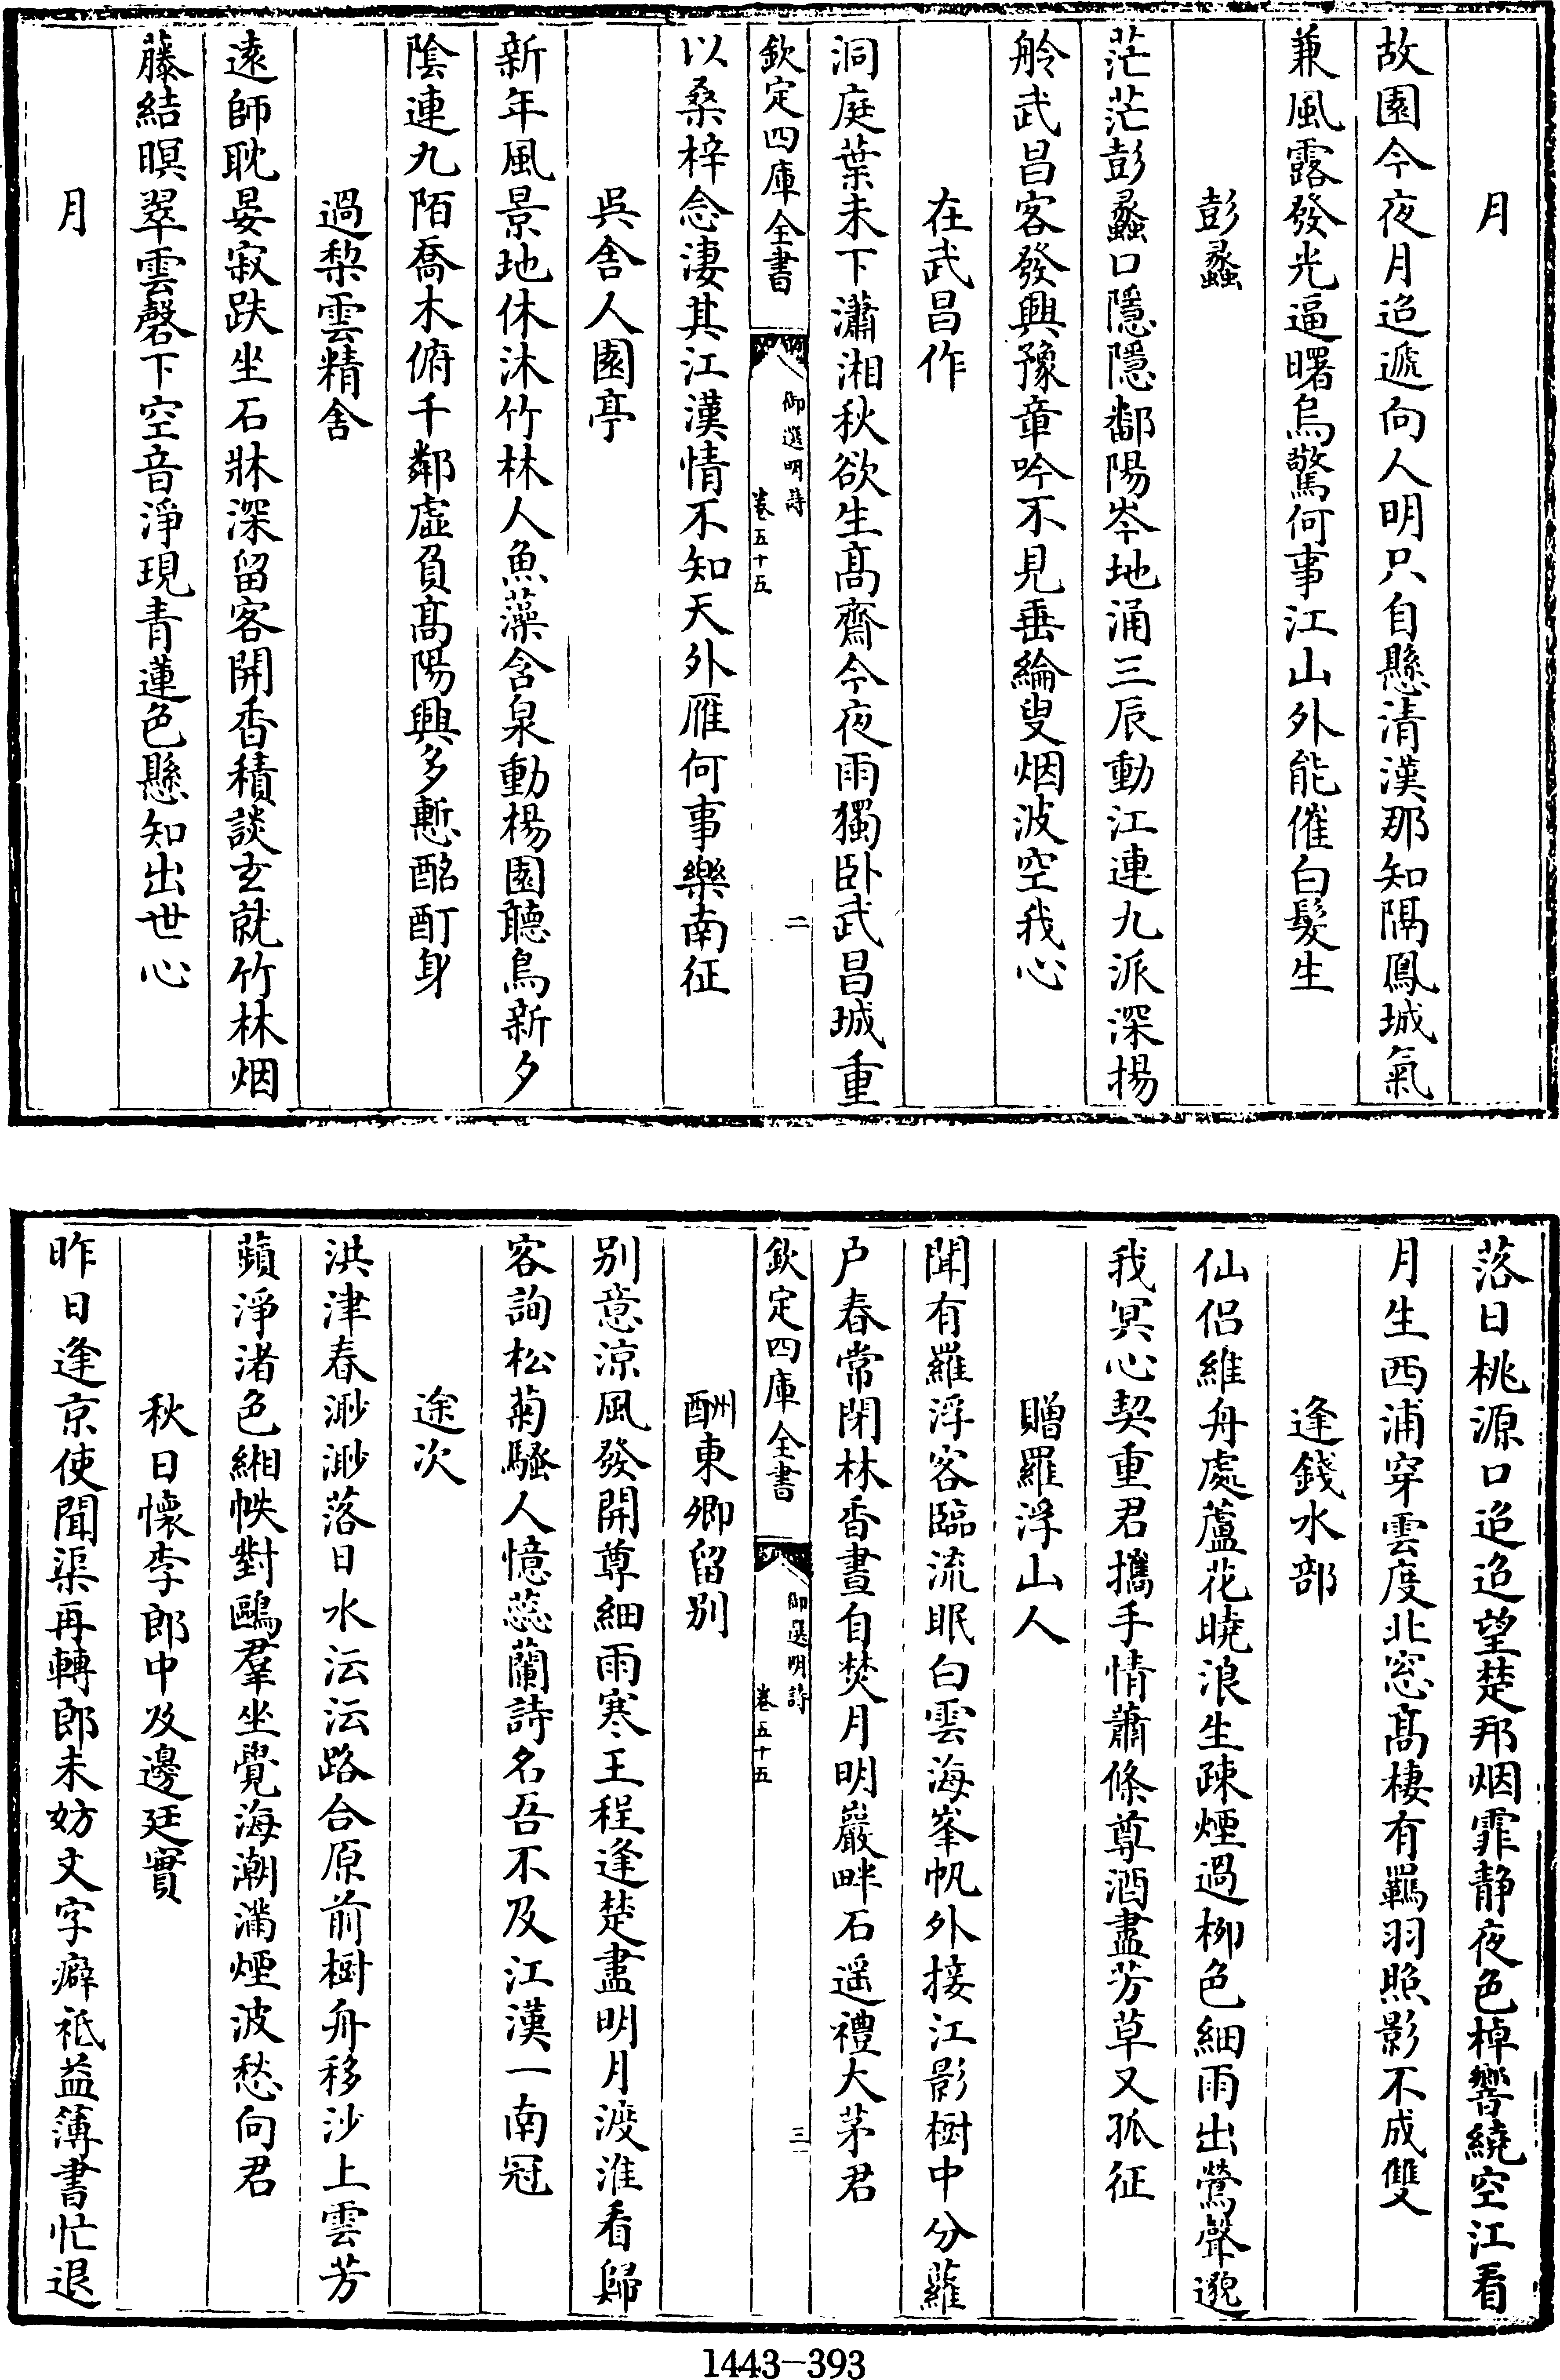 月
故園今夜月迢遞向人明只自懸清漢那知隔鳳城氣
兼風露發光逼曙烏驚何事江山外能催白髮生
彭蠡
茫茫彭蠡口隱隱鄱陽岑地涌三辰動江連九派深揚
舲武昌客發興豫章吟不見垂綸叟烟波空我心
在武昌作
洞庭葉未下瀟湘秋欲生髙齋今夜雨獨卧武昌城重
欽定四庫全書
御選明詩
卷五十五
二
以桑梓念淒其江漢情不知天外雁何事樂南征
吳舍人園亭
新年風景地休沐竹林人魚藻含泉動楊園聽鳥新夕
陰連九陌喬木俯千鄰虛負髙陽興多慙酩酊身
過梨雲精舍
遠師耽晏寂趺坐石牀深留客開香積談玄就竹林烟
藤結暝翠雲磬下空音淨現青蓮色懸知出世心
月
落日桃源口迢迢望楚邦烟霏静夜色棹響繞空江看
月生西浦穿雲度北窓髙棲有羈羽照影不成雙
逢錢水部
仙侶維舟處蘆花曉浪生疎煙過柳色細雨出鶯聲邈
我冥心契重君攜手情蕭條尊酒盡芳草又孤征
贈羅浮山人
聞有羅浮客臨流眠白雲海峯帆外接江影樹中分蘿
户春常閉林香晝自焚月明巖畔石遥禮大茅君
欽定四庫全書
御選明詩
卷五十五
三
酬東卿留别
别意涼風發開尊細雨寒王程逢楚盡明月渡淮看歸
客詢松菊騷人憶蕊蘭詩名吾不及江漢一南冠
途次
洪津春渺渺落日水沄沄路合原前樹舟移沙上雲芳
蘋淨渚色緗帙對鷗羣坐覺海潮滿煙波愁向君
秋日懷李郎中及邊廷實
昨日逢京使聞渠再轉郎未妨文字癖祗益簿書忙退
1443-393